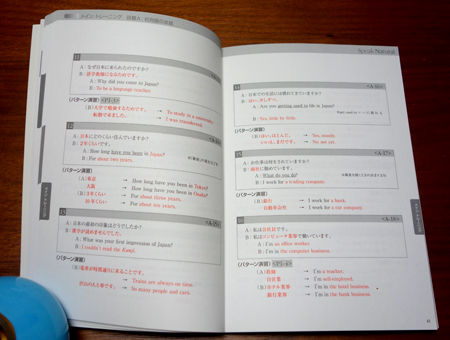 11
A : なぜ日本に来られたのですか?
B : 語学教師になるためです。
A : Why did you come to Japan?
B : To be a language teacher.
(パターン演習)
(B) 大学で勉強するためです。 → To study in a university.
転勤で来ました。 → I was transferred.
12
A : 日本にどのくらい住んでいますか?
B : 2年くらいです。
A : How long have you been in Japan?
B : For about two years.
(パターン演習)
(A) 東京 → How long have you been in Tokyo?
大阪 → How long have you been in Osaka?
(B) 3年くらい → For about three years.
10年くらい → For about ten years.
13
A : 日本の最初の印象はどうでしたか?
B : 漢字が読めませんでした。
A : What was your first impression of Japan?
B : I couldn't read the Kanji.
(パターン演習)
(B) 電車が時間通りに来ることです。
→ Trains are always on time.
沢山の人と車です。 → So many people and cars.
Speak Natural
14
A : 日本での生活には慣れてきていますか?
B : はい、少しずつ。
A : Are you getting used to life in Japan?
B : Yes, little by little.
(パターン演習)
(B) はい、ほとんど。 → Yes, mostly.
いいえ、まだです。 → No, not yet.
15
<A-17>
A : お仕事は何をされていますか?
B : 商社に勤めています。
A : What do you do?
B : I work for a trading company.
(パターン演習)
(B) 銀行 → I work for a bank.
自動車会社 → I work for a car company.
16
<A-18>
A : 私は会社員です。
B : 私はコンピュータ業界で働いています。
A : I'm an office worker.
B : I'm in the computer business.
(パターン演習)
(A) 教師 → I'm a teacher.
自営業 → I'm self-employed.
(B) ホテル業界 → I'm in the hotel business.
銀行業界 → I'm in the bank business.